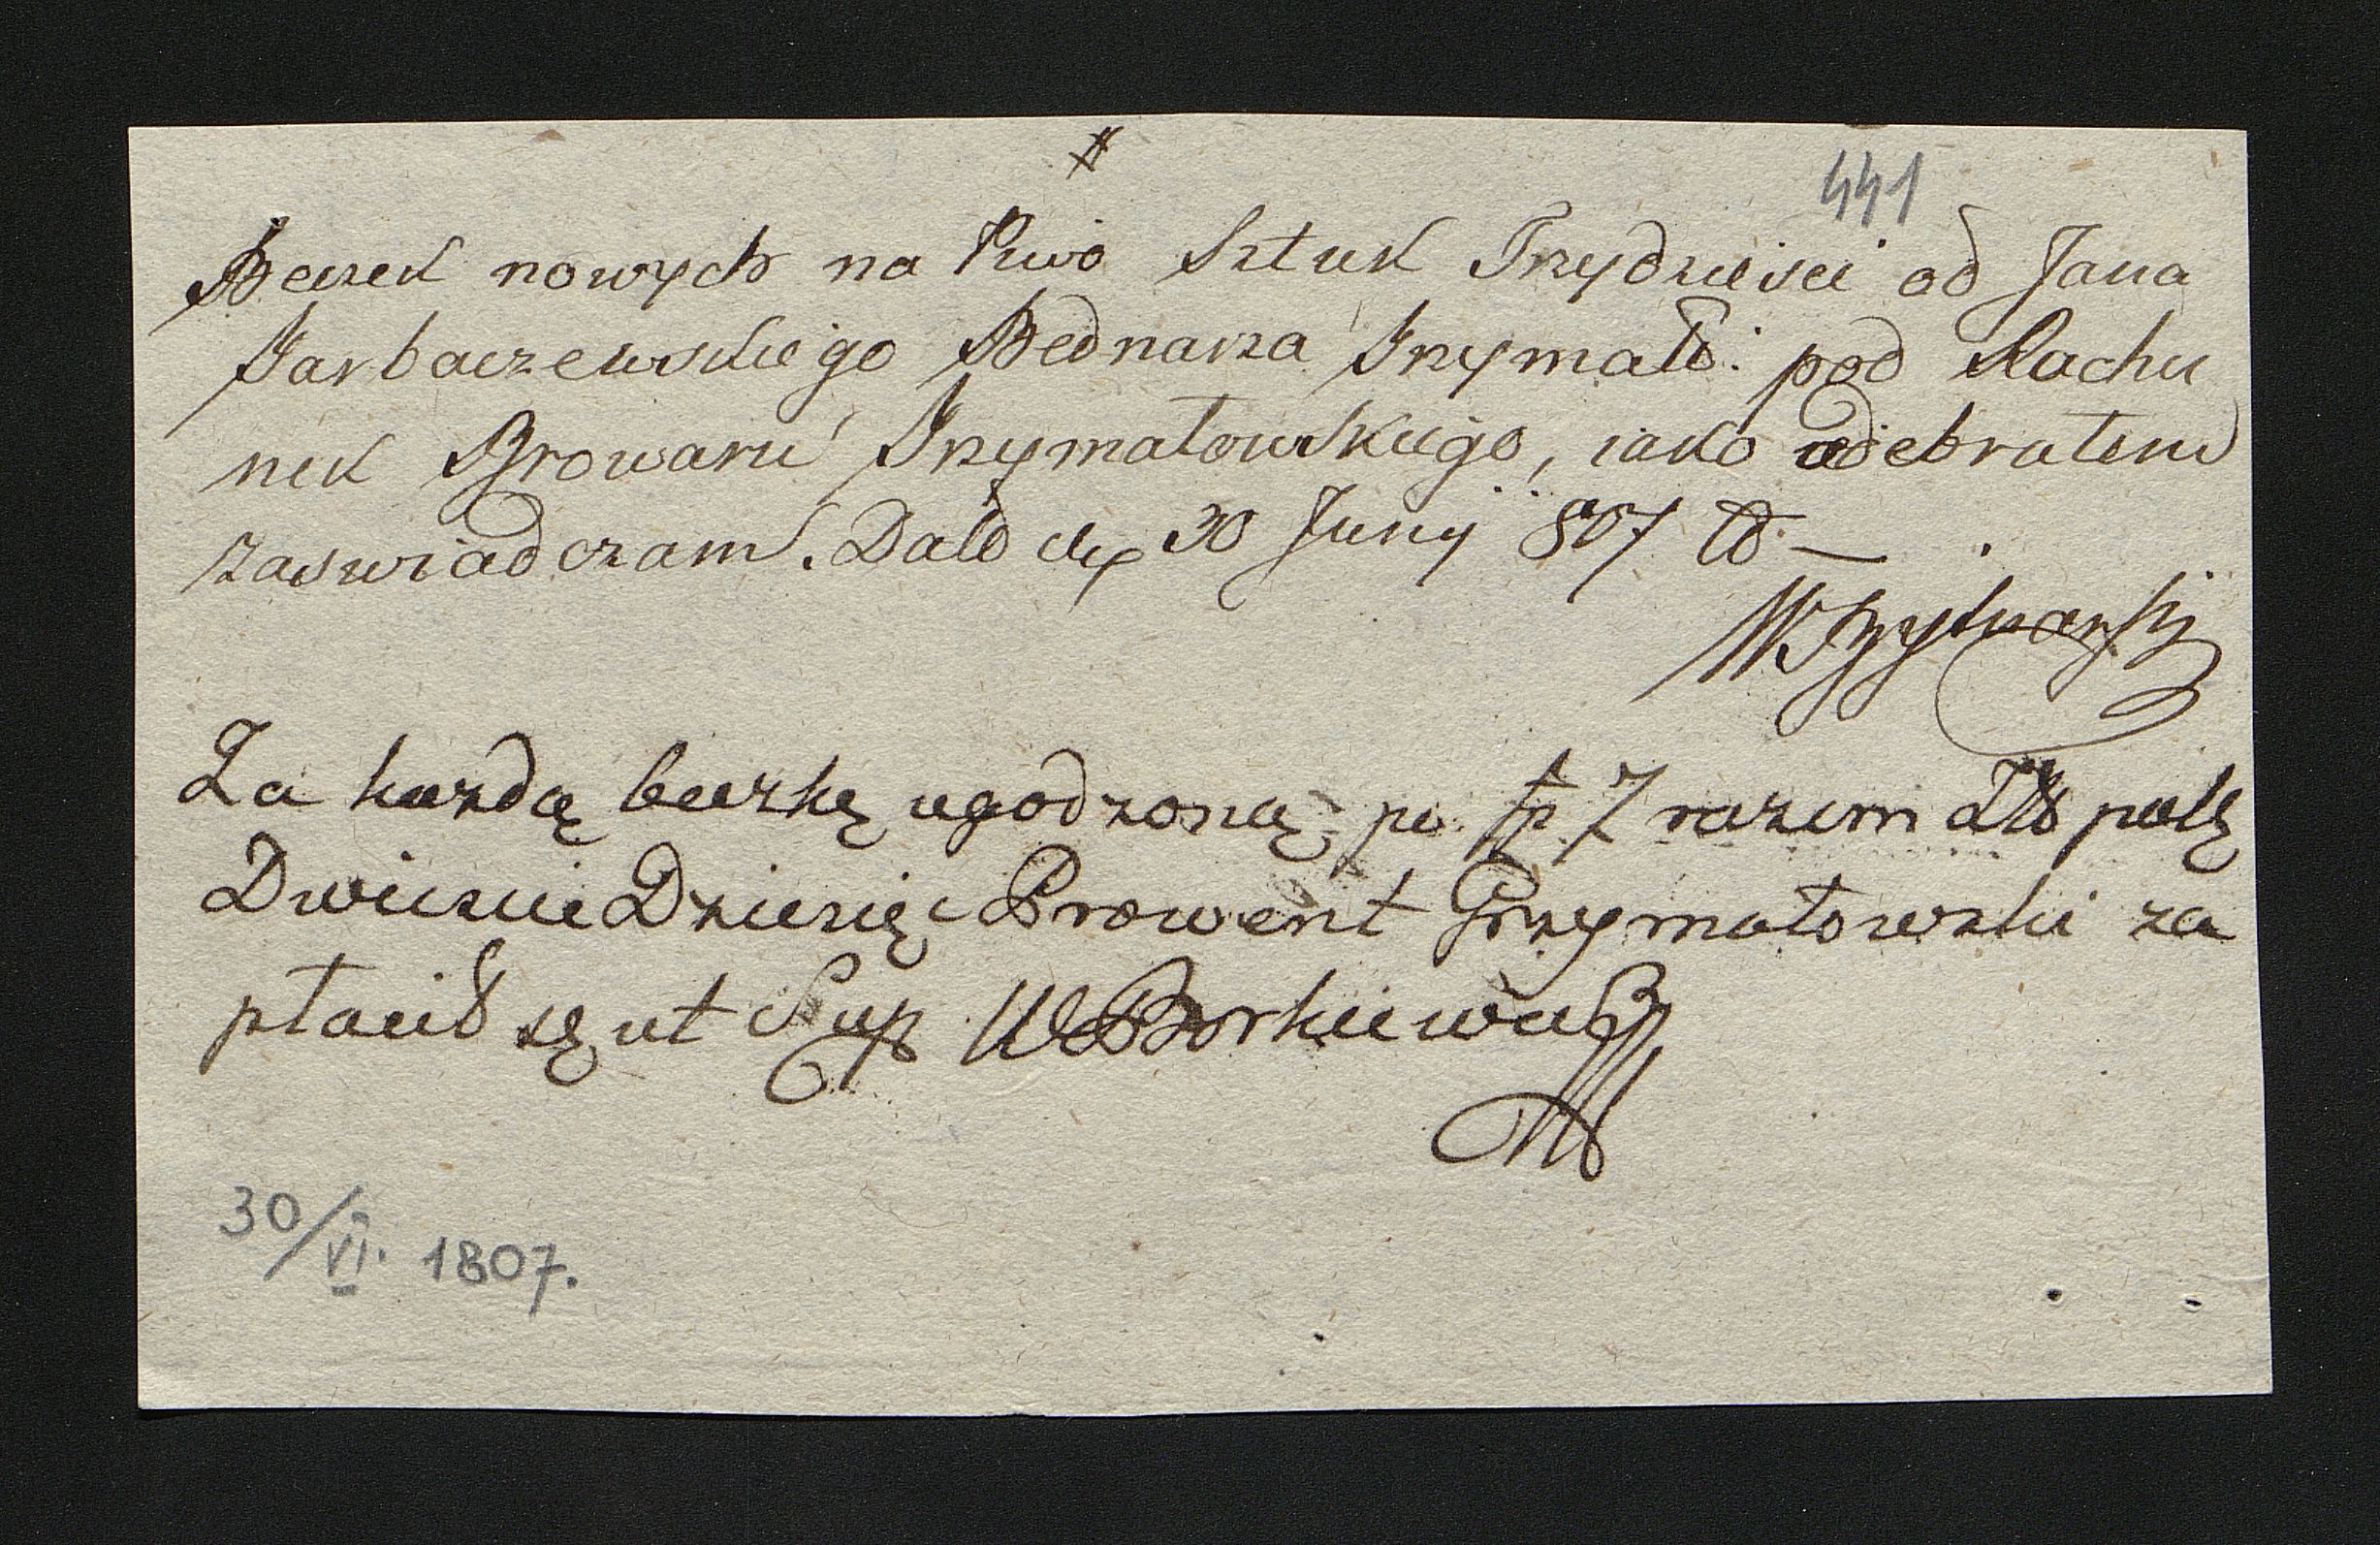 #
441
Beczek nowych na Piwo Sztuk Trzydzieści od Jana
Garbaczewskiego Bednarza Grzymałł: pod Rachu
nek Browaru Grzymałowskiego, iako odebrałem
zaswiadczam. Datt d 30 Junij 807
Za kazdą beczkę ugodzoną po fp 7 razem Złł polę
Dwiescie Dziesięć Prowent Grzymałowski za
płacił ut Sup WBorkiewicz
30/VI. 1807.